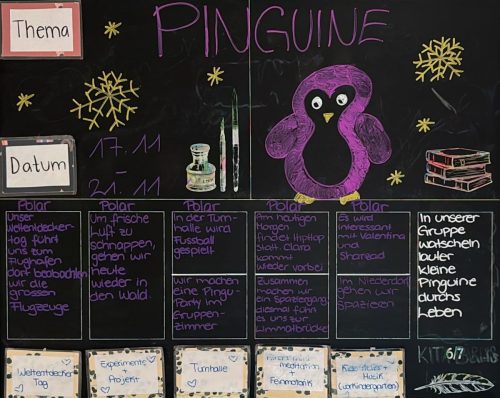 Thema
PINGUINE
Datum
17.11
-
21.11
Polar
Unser
Weltentdecker-
tag führt
uns zum
Flughafen
dort beobachten
wir die
grossen
Flugzeuge
Polar
Um frische
Luft zu
schnappen,
gehen wir
heute
wieder in
den Wald.
Polar
In der Turn-
halle wird
Fussball
gespielt
wir machen
eine Pingu-
Party im
Gruppen-
zimmer
Polar
Am heutigen
Morgen
findet HipHop
statt Clara
kommt
wieder vorbei
Zusammen
machen wir
ein Spaziergang
diesmal führt
es uns zur
Limmatbrücke
Polar
Es wird
interessant
mit Valentina
und
Sharzad
Im Niederdorf
gehen wir
Spazieren
In unserer
Gruppe
watscheln
lauter
kleine
Pinguine
durchs
Leben
Weltentdecker
Tag
Experimente
+
Projekt
Turnhalle
meditation
+
Feinmotorik
+
Musik
(Vorkindergarten)
KITA